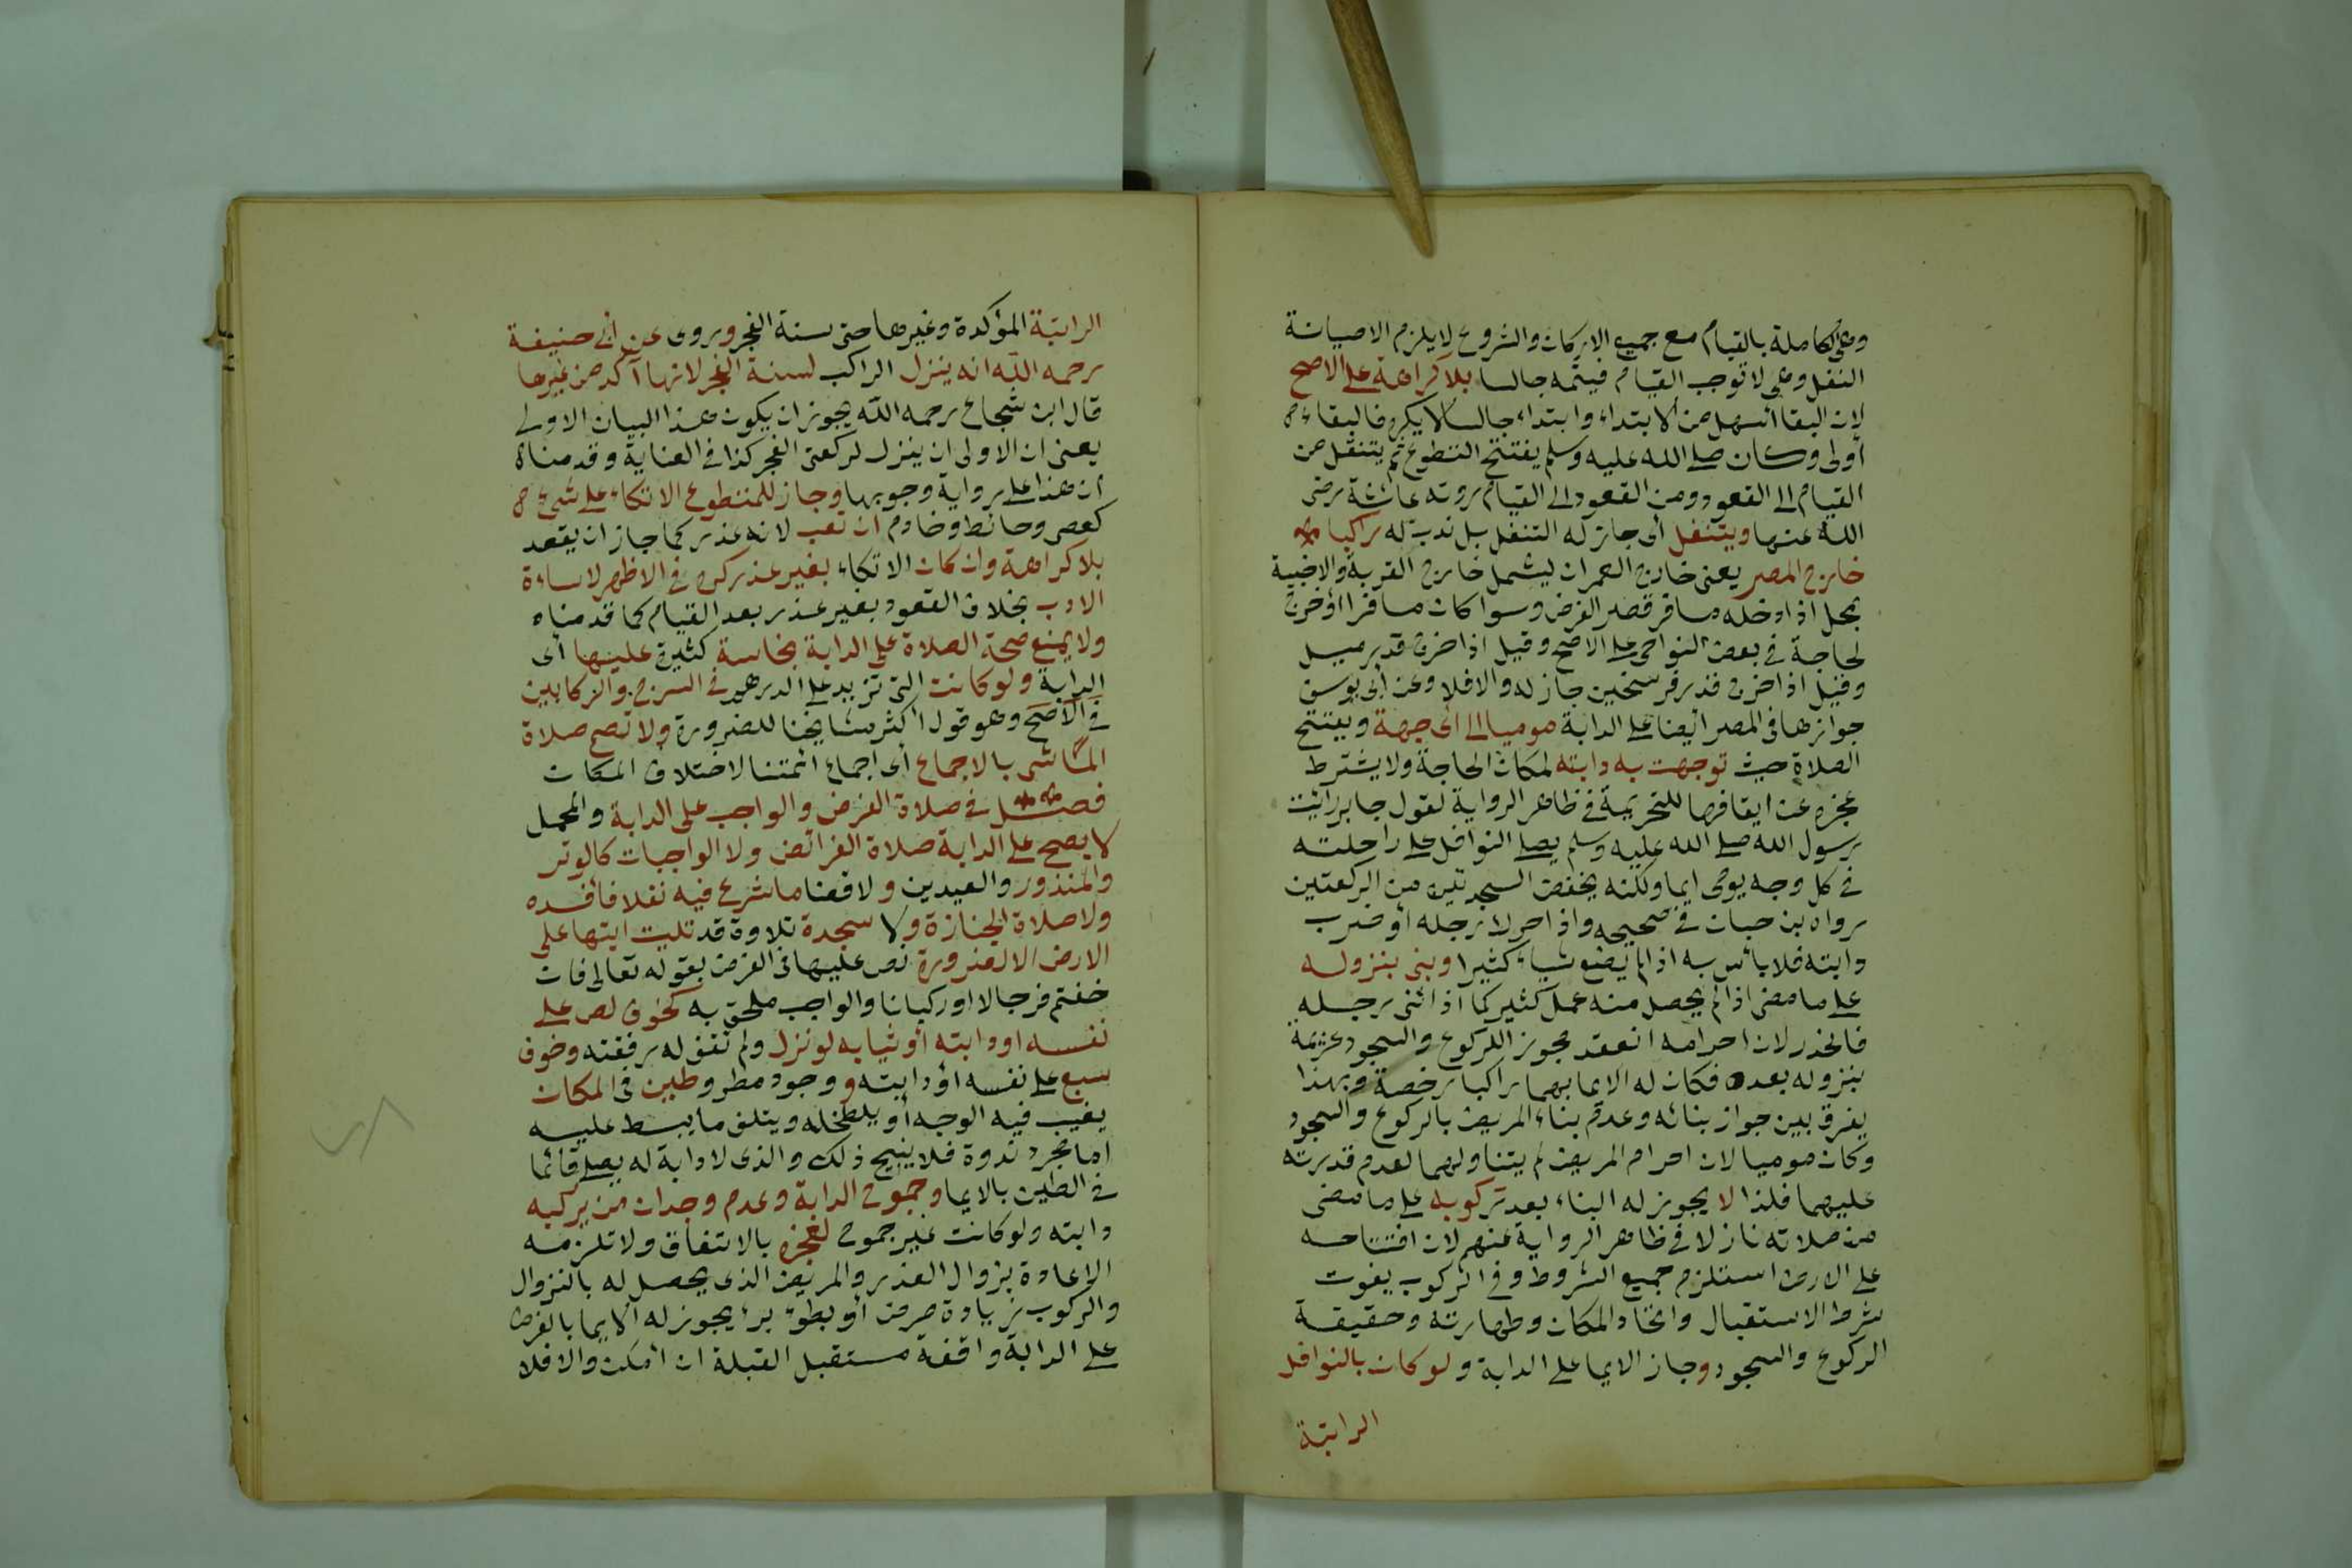 وهي الكاملة بالقيام مع جميع الاركان والشروع لا يلزم الا صيانة
النفل وهي لا توجب القيام فيتمه جالسا بلا كراهة على الاصح
لان البقا أسهل من الابتداء وابتداءه جالسا لا يكره فالبقاء
أولى وكان صلى الله عليه وسلم يفتتح التطوع ثم يتنقل من
القيام الى القعود ومن القعود الى القيام روته عائشة رضى
الله عنها ويتنفل أى جاز له التنفل بل ندب له راكبا
خارج المصر يعنى خارج العمران ليشمل خارج القرية والاخبية
بمحل اذا دخله مسافر قصر الفرض وسوا كان مسافرا أو خرج
لحاجة فى بعض النواحى على الاصح وقيل اذا خرج قدر ميل
وقيل اذا خرج قدر فرسخين جاز له والا فلا وعن أبى يوسف
جوازها فى المصر أيضا على الدابة موميا الى اى جهة ويفتتح
الصلاة حيث توجهت به دابته لمكان الحاجة ولا يشترط
عجزه عن ايقافها للتحريمة فى ظاهر الرواية لقول جابر رأيت
رسول الله صلى الله عليه وسلم يصلى النوافل على راحلته
فى كل وجه يومى ايما ولكنه يخفض السجدتين من الركعتين
رواه بن حبان فى صحيحه واذا حرك رجله أو ضرب
دابته فلا بأس به اذا لم يصنع شياء كثيرا وبنى بنزوله
على ما مضى اذا لم يحصل منه عمل كثير كما اذا ثنى رجله
فانحدر لان احرامه انعقد مجوز اللركوع والسجود عزيمة
بنزوله بعده فكان له الايما بهما راكبا رخصة وبهذا
يفرق بين جواز بنائه وعدم بناء المريض بالركوع والسجود
وكان موميا لان احرام المريض لم يتناولهما لعدم قدرته
عليهما فلذا لا يجوز له البناء بعد ركوبه على ما مضى
من صلاته نازلا فى ظاهر الرواية عنهم لان افتتاحه
على الارض استلزم جميع الشروط وفى الركوب يفوت
شرط الاستقبال واتحاد المكان وطهارته وحقيقة
الركوع والسجود وجاز الايما على الدابة ولو كان بالنوافل
الراتبة
الراتبة المؤكدة وغيرها حتى سنة الفجر وروى عن أبى حنيفة
رحمه الله انه ينزل الراكب لسنة الفجر لانها آكد من غيرها
قال ابن شجاع رحمه الله يجوز ان يكون هذا البيان الاولى
يعنى ان الاولى ان ينزل لركعتى الفجر كذا فى العناية وقدمناه
ان هذا على رواية وجوبها وجاز للمتطوع الاتكاء على شىء
كعصى وحائط وخادم ان تعب لانه عذر كما جاز ان يقعد
بلا كراهة وان كان الاتكاء بغير عذر كره فى الاظهر لاساءة
الادب بخلاف القعود بغير عذر بعد القيام كما قدمناه
ولا يمنع صحة الصلاة على الدابة نجاسة كثيرة عليها أى
الدابة ولو كانت التى تزيد على الدرهم فى السرج والركابين
فى الاصح وهو قول أكثر مشايخنا للضرورة ولا تصح صلاة
الماشى بالاجماع أى اجماع ائمتنا لاختلاف المكان
فصل فى صلاة الفرض والواجب على الدابة والمحمل
لا يصح على الدابة صلاة الفرائض ولا الواجبات كالوتر
والمنذور والعيدين ولا قضا ما شرع فيه نفلا فأفسده
ولا صلاة الجنازة ولا سجدة تلاوة قد تليت ايتها على
الارض الا لضرورة نص عليها فى الفرض بقوله تعالى فان
خفتم فرجالا او ركبانا والواجب ملحق به كخوف لص على
نفسه او دابته أو ثيابه لو نزل ولم تقف له رفقته وخوف
سبع على نفسه أو دابته و وجود مطر وطين فى المكان
يغيب فيه الوجه أو يلطخه ويتلف ما يبسط عليه
اما مجرد ندوة فلا يبيح ذلك والذى لا دابة له يصلى قائما
فى الطين بالايما وجموح الدابة وعدم وجدان من يركبه
دابته ولو كانت غير جموح لعجزه بالاتفاق ولا تلزمه
الاعادة بزوال العذر والمريض الذى يحصل له بالنزوال
والركوب زيادة مرض أو بطؤ برء يجوز له الايما بالفرض
على الدابة واقفة مستقبل القبلة ان أمكن والا فلا